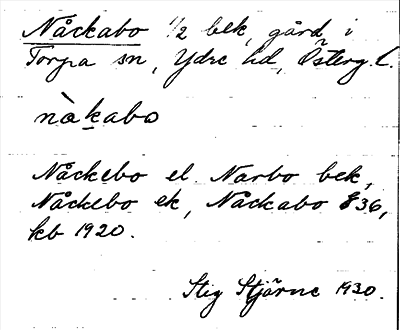 Nåckabo 1/2 bek, gård i
Torpa sn, Ydre hd, Österg. l.
nàkabo
Nåckebo el Narbo bek,
Nåckebo ek, Nåckabo 836,
kb 1920.
Stig Stjärne 1930.